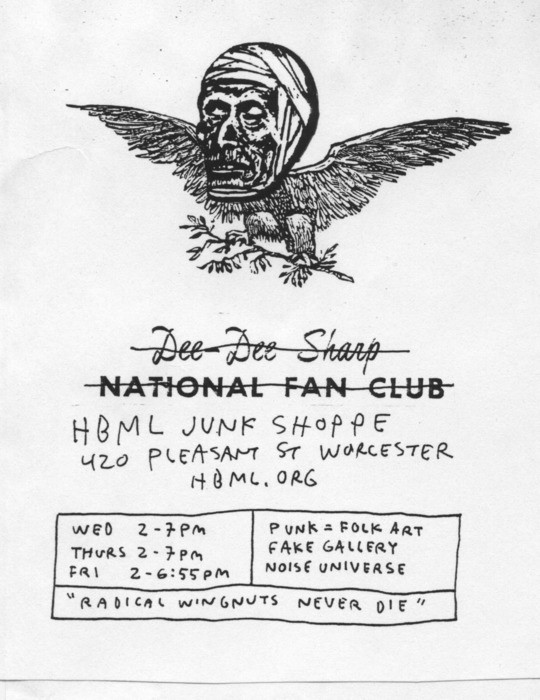 Dee-Dee Sharp
NATIONAL FAN CLUB
HBML JUNK SHOPPE
420 PLEASANT ST WORCESTER
HBML.ORG
WED 2-7PM
THURS 2-7PM
FRI 2-6:55PM
PUNK = FOLK ART
FAKE GALLERY
NOISE UNIVERSE
"RADICAL WINGNUTS NEVER DIE"